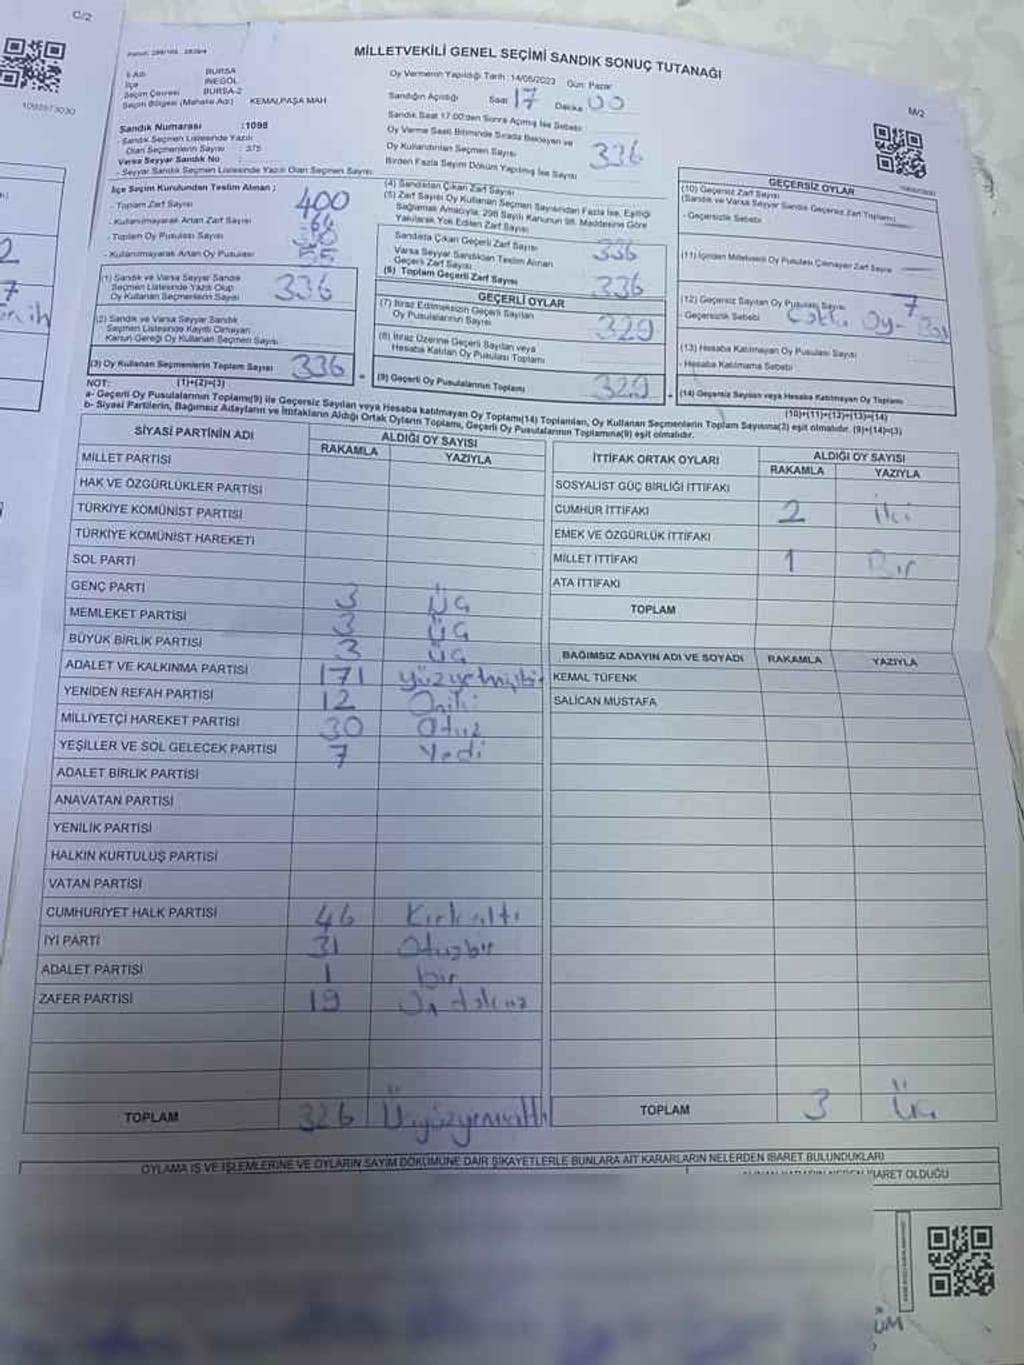 C/2
1093573030
MİLLETVEKİLİ GENEL SEÇİMİ SANDIK SONUÇ TUTANAĞI
M/2
İl Adı BURSA
İlçe İNEGÖL
Seçim Çevresi BURSA-2
Seçim Bölgesi (Mahalle Adı) KEMALPAŞA MAH
Oy Vermenin Yapıldığı Tarih :14/05/2023 Gün: Pazar
Sandığın Açıldığı Saat 17 Dakika 00
Sandık Saat 17.00'den Sonra Açılmış İse Sebebi
Oy Verme Saati Bitiminde Sırada Bekleyen ve
Oy Kullandırılan Seçmen Sayısı
336
Birden Fazla Sayım Döküm Yapılmış İse Sayısı
Sandık Numarası :1098
- Sandık Seçmen Listesinde Yazılı
Olan Seçmenlerin Sayısı : 375
Varsa Seyyar Sandık No :
- Seyyar Sandık Seçmen Listesinde Yazılı Olan Seçmen Sayısı
İlçe Seçim Kurulundan Teslim Alınan ;
- Toplam Zarf Sayısı 400
- Kullanılmayarak Artan Zarf Sayısı 64
- Toplam Oy Pusulası Sayısı
- Kullanılmayarak Artan Oy Pusulası
(1) Sandık ve Varsa Seyyar Sandık
Seçmen Listesinde Yazılı Olup
Oy Kullanan Seçmenlerin Sayısı 336
(2) Sandık ve Varsa Seyyar Sandık
Seçmen Listesinde Kayıtlı Olmayan
Kanun Gereği Oy Kullanan Seçmen Sayısı
(3) Oy Kullanan Seçmenlerin Toplam Sayısı 336
(1)+(2)=(3)
(4) Sandıktan Çıkan Zarf Sayısı
(5) Zarf Sayısı Oy Kullanan Seçmen Sayısından Fazla İse, Eşitliği
Sağlamak Amacıyla, 298 Sayılı Kanunun 98. Maddesine Göre
Yakılarak Yok Edilen Zarf Sayısı
Sandıkta Çıkan Geçerli Zarf Sayısı 336
Varsa Seyyar Sandıktan Teslim Alınan
Geçerli Zarf Sayısı
(6) Toplam Geçerli Zarf Sayısı 336
GEÇERLİ OYLAR
(7) İtiraz Edilmeksizin Geçerli Sayılan
Oy Pusulalarının Sayısı 329
(8) İtiraz Üzerine Geçerli Sayılan veya
Hesaba Katılan Oy Pusulası Toplamı
= (9) Geçerli Oy Pusulalarının Toplamı 329
GEÇERSİZ OYLAR
(10) Geçersiz Zarf Sayısı
(Sandık ve Varsa Seyyar Sandık Geçersiz Zarf Toplamı)
- Geçersizlik Sebebi
(11) İçinden Milletvekili Oy Pusulası Çıkmayan Zarf Sayısı
(12) Geçersiz Sayılan Oy Pusulası Sayısı 7
- Geçersizlik Sebebi
(13) Hesaba Katılmayan Oy Pusulası Sayısı
- Hesaba Katılmama Sebebi
(14) Geçersiz Sayılan veya Hesaba Katılmayan Oy Toplamı
(10)+(11)+(12)+(13)=(14)
NOT:
a- Geçerli Oy Pusulalarının Toplamı(9) ile Geçersiz Sayılan veya Hesaba katılmayan Oy Toplamı(14) Toplamları, Oy Kullanan Seçmenlerin Toplam Sayısına(3) eşit olmalıdır. (9)+(14)=(3)
b- Siyasi Partilerin, Bağımsız Adayların ve İttifakların Aldığı Ortak Oyların Toplamı, Geçerli Oy Pusulalarının Toplamına(9) eşit olmalıdır.
SİYASİ PARTİNİN ADI ALDIĞI OY SAYISI
RAKAMLA YAZIYLA
MİLLET PARTİSİ
HAK VE ÖZGÜRLÜKLER PARTİSİ
TÜRKİYE KOMÜNİST PARTİSİ
TÜRKİYE KOMÜNİST HAREKETİ
SOL PARTİ
GENÇ PARTİ 3 Üç
MEMLEKET PARTİSİ 3 Üç
BÜYÜK BİRLİK PARTİSİ 3 Üç
ADALET VE KALKINMA PARTİSİ 171 yüzyetmişbir
YENİDEN REFAH PARTİSİ 12 Oniki
MİLLİYETÇİ HAREKET PARTİSİ 30 Otuz
YEŞİLLER VE SOL GELECEK PARTİSİ 7 Yedi
ADALET BİRLİK PARTİSİ
ANAVATAN PARTİSİ
YENİLİK PARTİSİ
HALKIN KURTULUŞ PARTİSİ
VATAN PARTİSİ
CUMHURİYET HALK PARTİSİ 46 Kırkaltı
İYİ PARTİ 31 Otuzbir
ADALET PARTİSİ 1 bir
ZAFER PARTİSİ 19 On dokuz
TOPLAM 326 Üçyüzyirmialtı
İTTİFAK ORTAK OYLARI ALDIĞI OY SAYISI
RAKAMLA YAZIYLA
SOSYALİST GÜÇ BİRLİĞİ İTTİFAKI
CUMHUR İTTİFAKI 2 iki
EMEK VE ÖZGÜRLÜK İTTİFAKI
MİLLET İTTİFAKI 1 Bir
ATA İTTİFAKI
TOPLAM
BAĞIMSIZ ADAYIN ADI VE SOYADI RAKAMLA YAZIYLA
KEMAL TÜFENK
SALİCAN MUSTAFA
TOPLAM 3 Üç
OYLAMA İŞ VE İŞLEMLERİNE VE OYLARIN SAYIM DÖKÜMÜNE DAİR ŞİKAYETLERLE BUNLARA AİT KARARLARIN NELERDEN İBARET BULUNDUKLARI
İBARET OLDUĞU